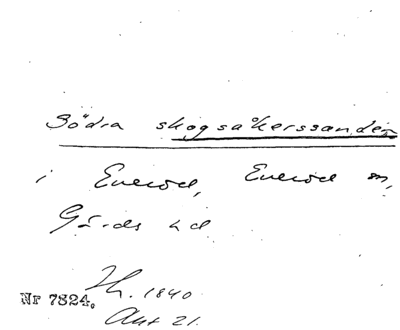 Södra skogsåkerssanden
i Everöd, Everöd sn,
Gärds hd
Th. 1840
Nr 7824.
Akt 21.